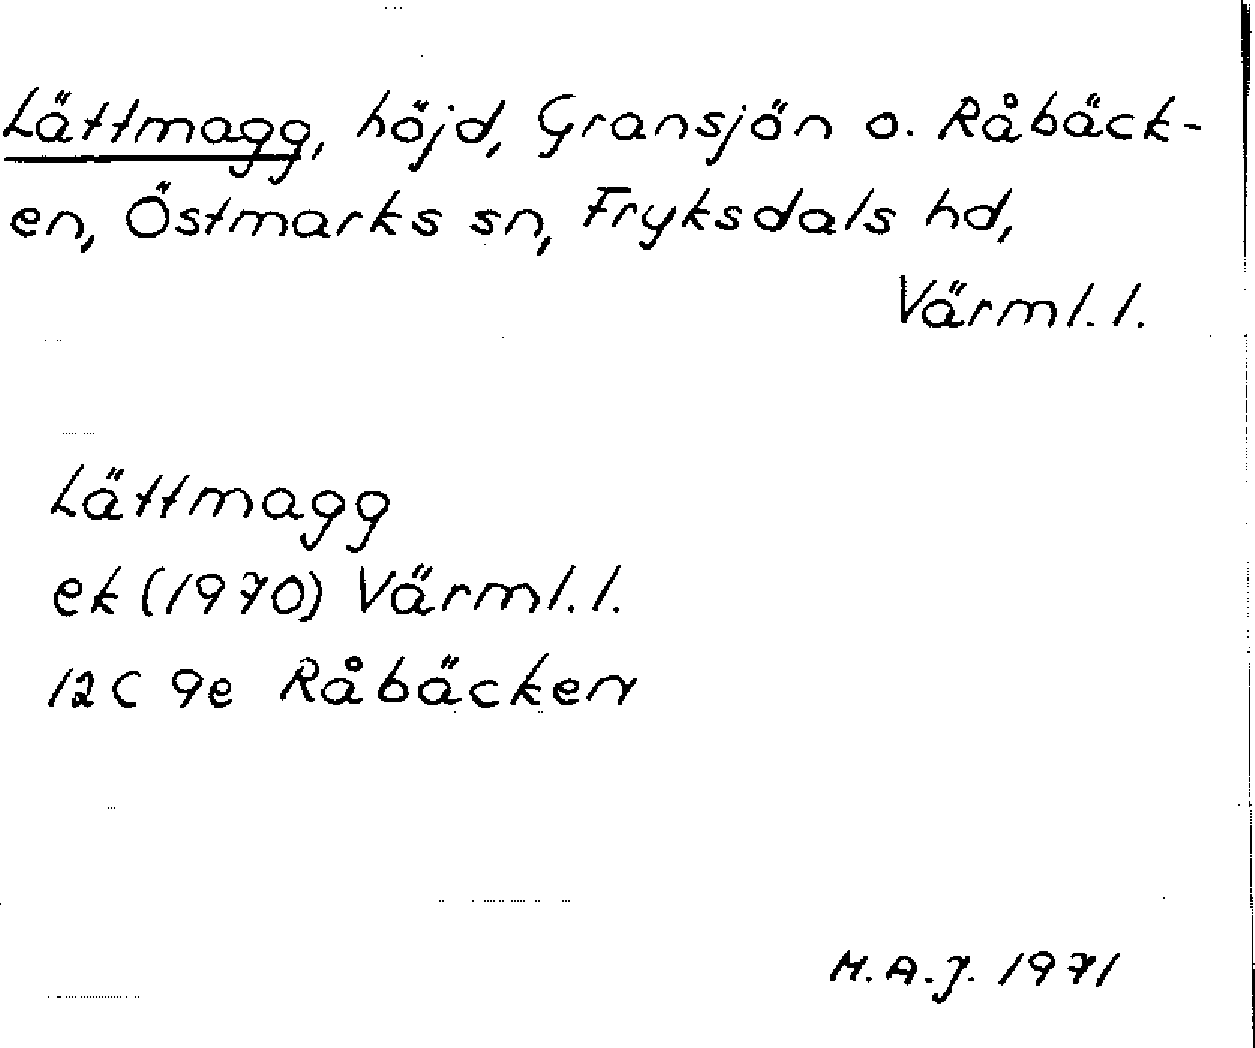 Lättmagg, höjd, Gransjön o. Råbäck-
en, Östmarks sn, Fryksdals hd,
Värml. l.
Lättmagg
ek (1970) Värml. l.
12 C 9e Råbäcken
M.A.J. 1971